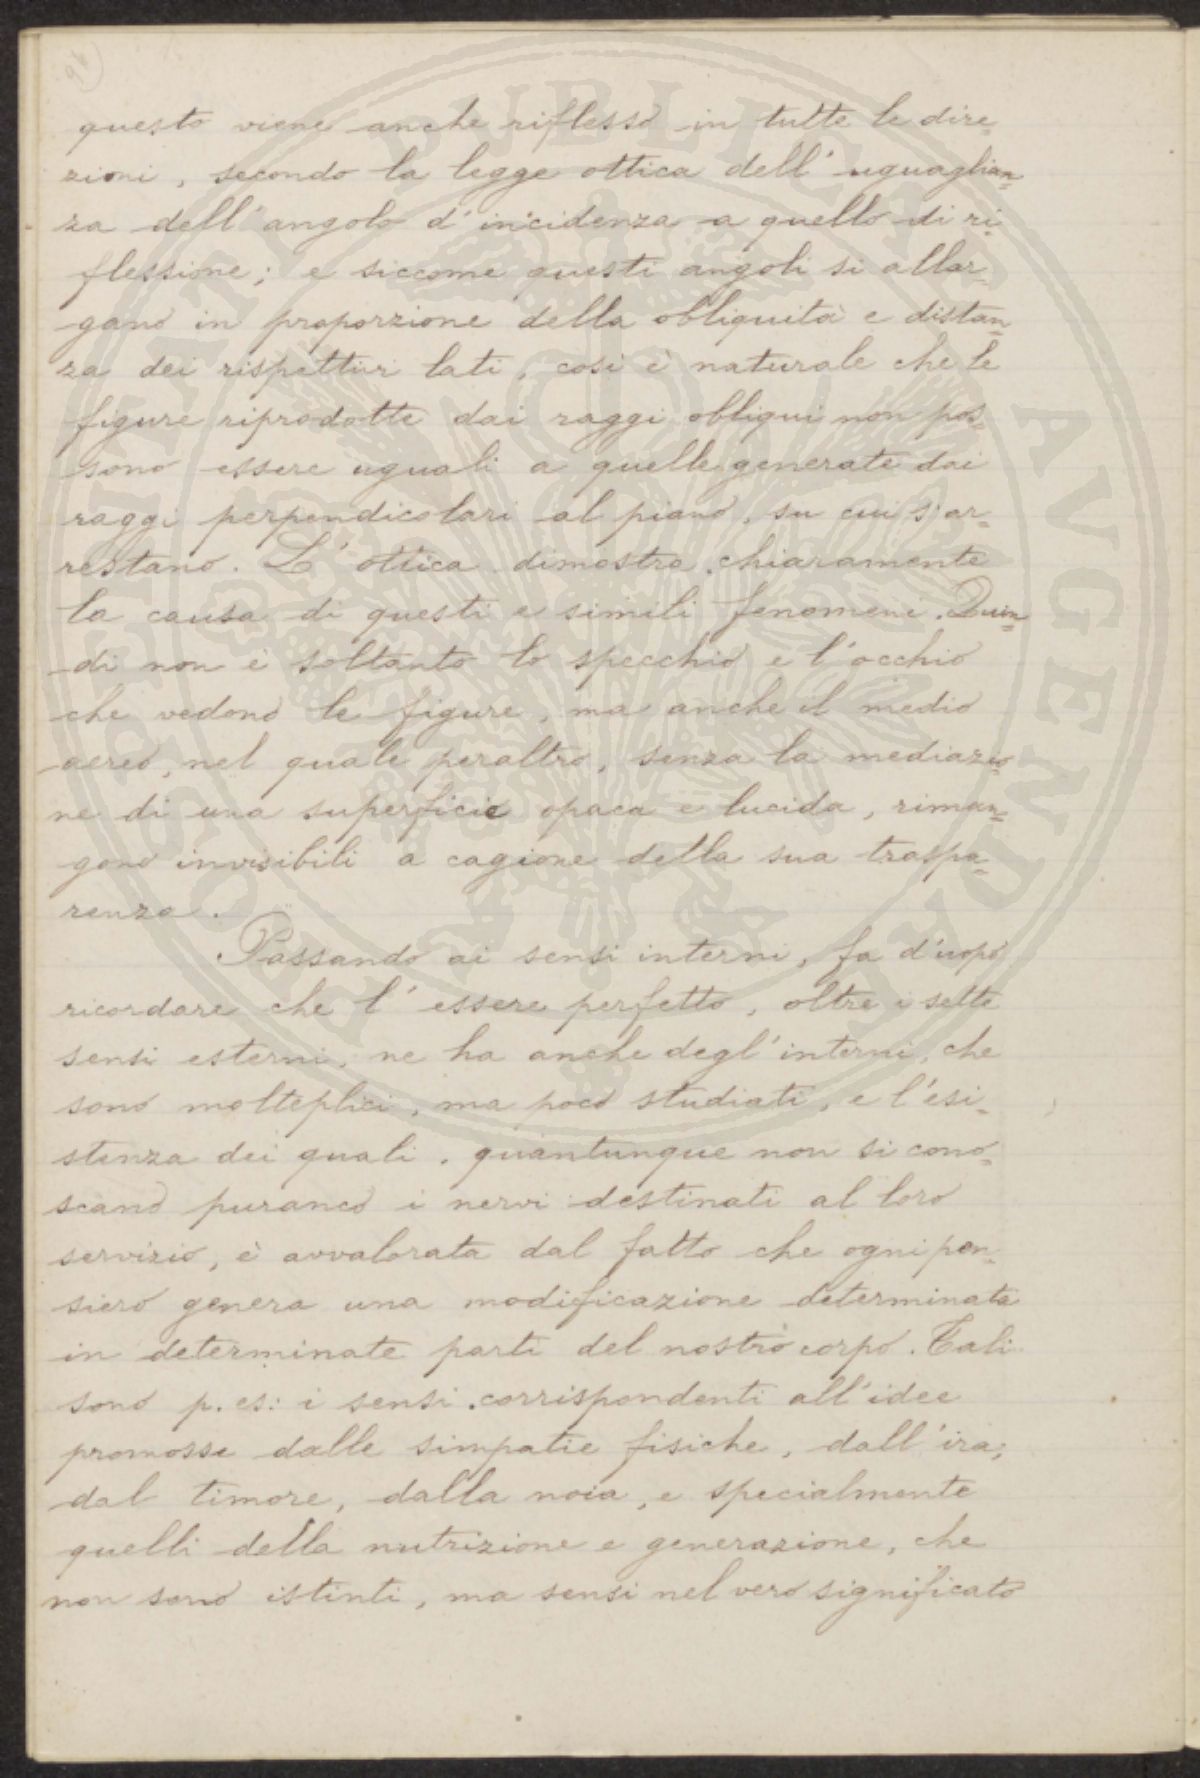 questo viene anche riflesso in tutte le dire-
zioni, secondo la legge ottica dell'uguaglian-
za dell'angolo d'incidenza a quello di ri-
flessione; e siccome questi angoli si allar-
gano in proporzione della obliquità e distan-
za dei rispettivi lati, così è naturale che le
figure riprodotte dai raggi obliqui non pos-
sono essere uguali a quelle generate dai
raggi perpendicolari al piano, su cui s'ar-
restano. L'ottica dimostra chiaramente
la causa di questi e simili fenomeni. Quin-
di non è soltanto lo specchio e l'occhio
che vedono le figure, ma anche il medio
aereo, nel quale peraltro, senza la mediazio-
ne di una superficie opaca e lucida, riman-
gono invisibili a cagione della sua traspa-
renza.
Passando ai sensi interni, fa d'uopo
ricordare che l'essere perfetto, oltre i sette
sensi esterni, ne ha anche degl'interni, che
sono molteplici, ma poco studiati, e l'esi-
stenza dei quali, quantunque non si cono-
scano puranco i nervi destinati al loro
servizio, è avvalorata dal fatto che ogni pen-
siero genera una modificazione determinata
in determinate parti del nostro corpo. Tali
sono p. es: i sensi corrispondenti all'idee
promosse dalle simpatie fisiche, dall'ira,
dal timore, dalla noia, e specialmente
quelli della nutrizione e generazione, che
non sono istinti, ma sensi nel vero significato